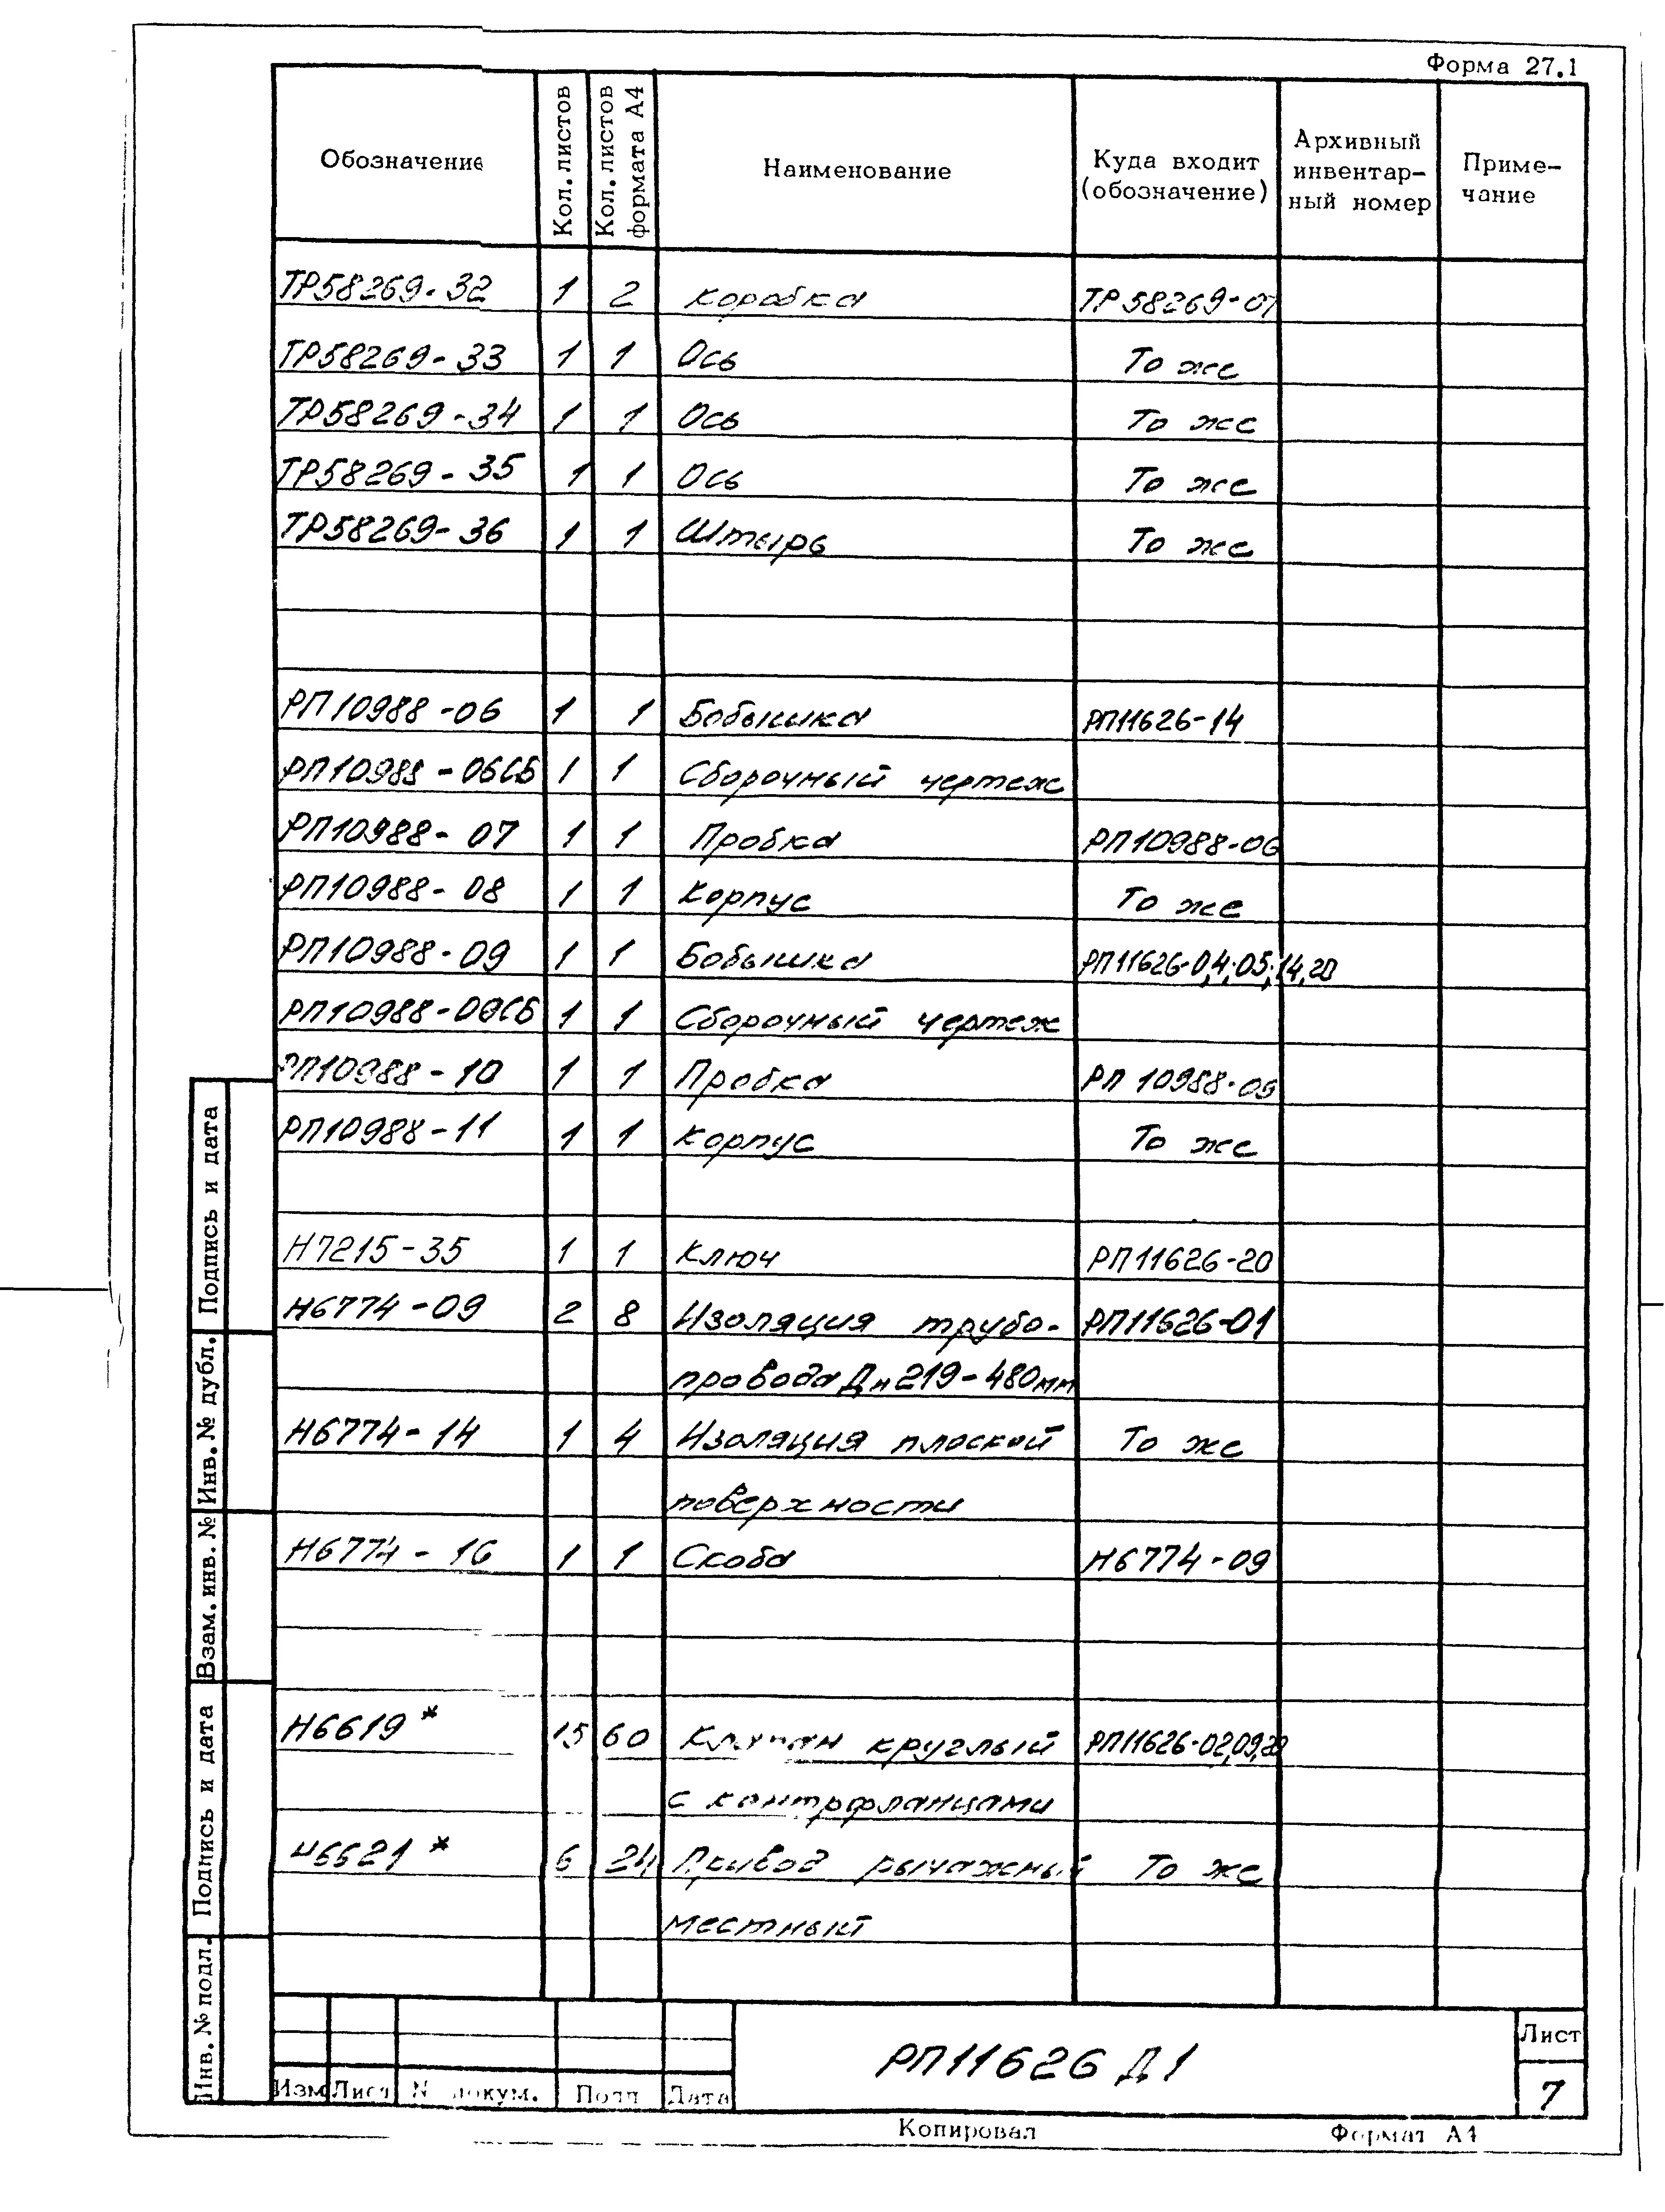 Форма 27.1
Обозначение Кол. листов Кол. листов формата А4 Наименование Куда входит (обозначение) Архивный инвентар-ный номер Приме-чание
ТР58269-32 1 2 Коробка ТР58269-01
ТР58269-33 1 1 Ось То же
ТР58269-34 1 1 Ось То же
ТР58269-35 1 1 Ось То же
ТР58269-36 1 1 Штырь То же
РП10988-06 1 1 Бобышка РП11626-14
РП10988-06СБ 1 1 Сборочный чертеж
РП10988-07 1 1 Пробка РП10988-06
РП10988-08 1 1 Корпус То же
РП10988-09 1 1 Бобышка РП11626-04,05,14,20
РП10988-09СБ 1 1 Сборочный чертеж
РП10988-10 1 1 Пробка РП10988-09
РП10988-11 1 1 Корпус То же
Н7215-35 1 1 Ключ РП11626-20
Н6774-09 2 8 Изоляция трубо- РП11626-01
провода Дн219-480мм
Н6774-14 1 4 Изоляция плоской То же
поверхности
Н6774-16 1 1 Скоба Н6774-09
Н6619* 15 60 Клапан круглый РП11626-02,09,20
с контрфланцами
Н6621* 6 24 Привод рычажный То же
местный
Подпись и дата
Инв. № дубл.
Взам. инв. №
Подпись и дата
Инв. № подл.
Изм Лист № докум. Подп Дата
РП11626 Д1
Лист
7
Копировал Формат А4